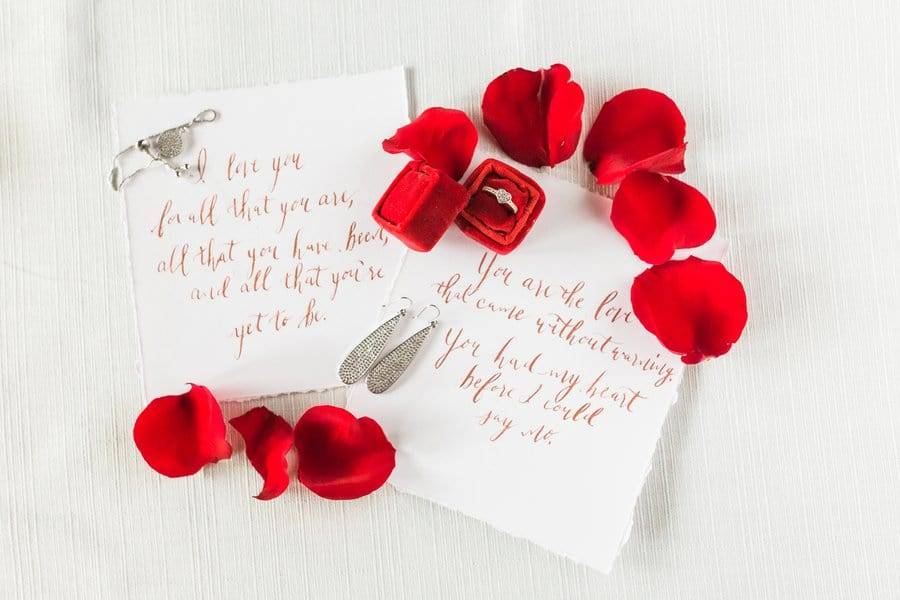 I love you
for all that you are,
all that you have been,
and all that you're
yet to be.
You are the love
that came without warning.
You had my heart
before I could
say no.